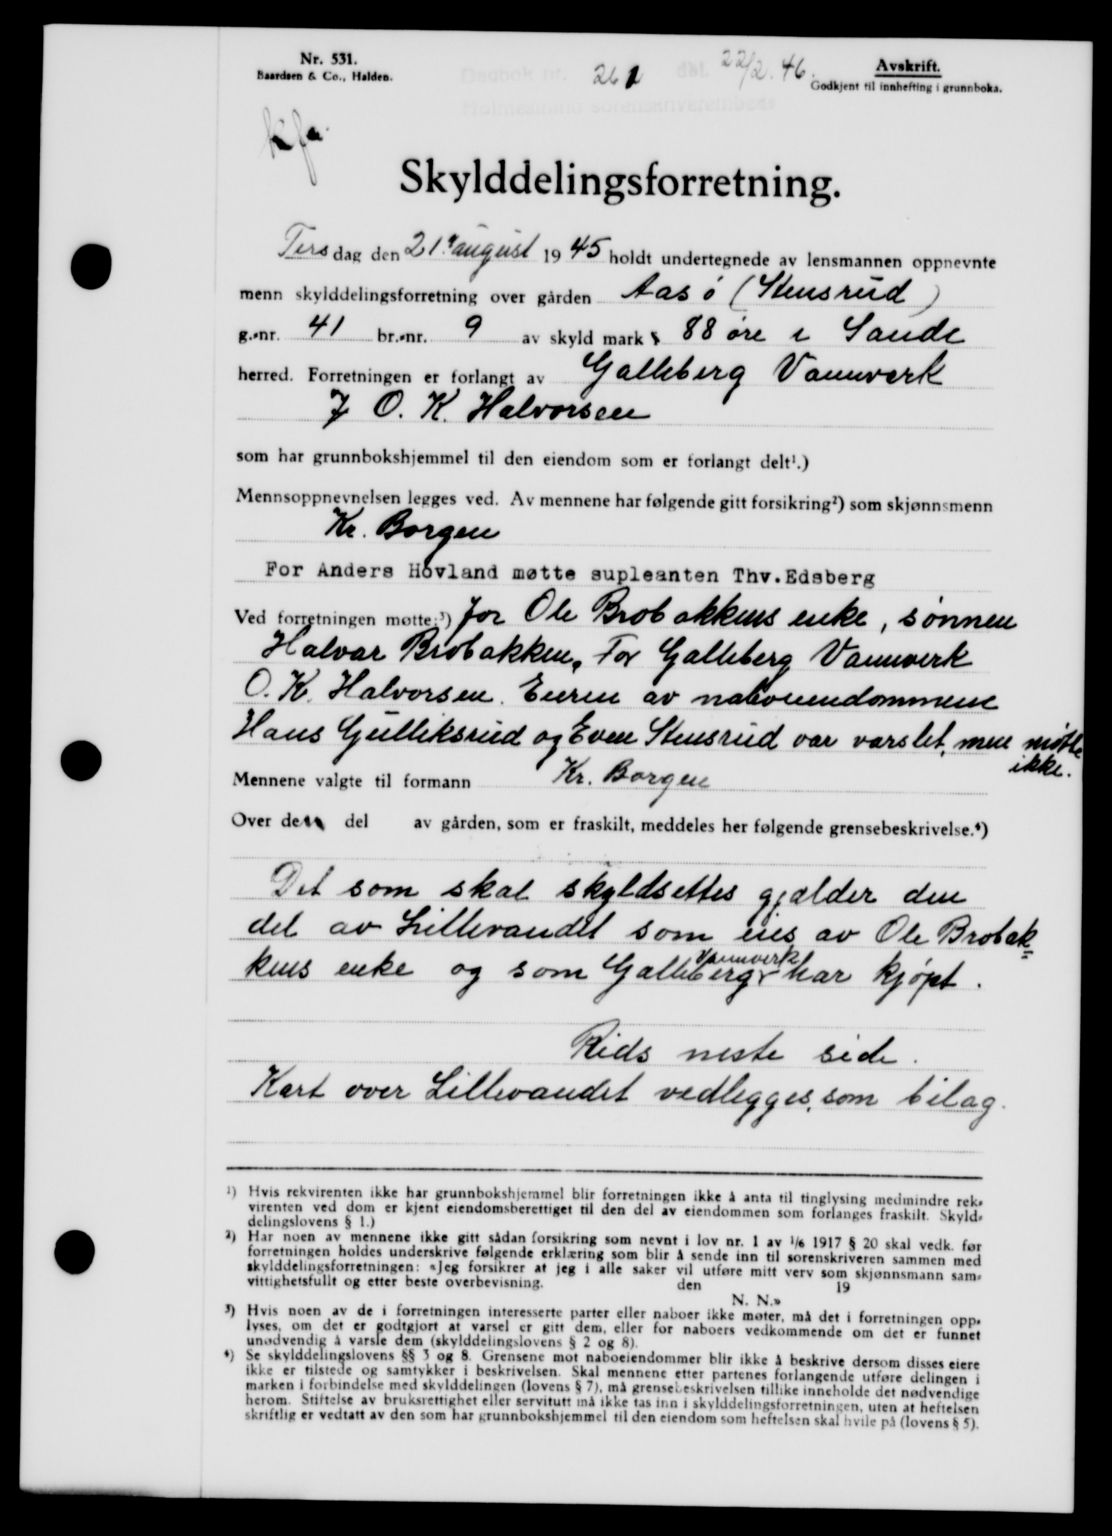 Nr. 531.
Baardsen & Co., Halden.
Dagbok nr. 261 dat. 22/2. 46.
Holmestrand sorenskriverembede
Avskrift.
Godkjent til innhefting i grunnboka.
Skylddelingsforretning.
Tirsdag den 21. august 1945 holdt undertegnede av lensmannen oppnevnte
menn skylddelingsforretning over gården Aas ö (Stensrud)
g.-nr. 41 br.-nr. 9 av skyld mark 88 öre i Sande
herred. Forretningen er forlangt av Galleberg Vannverk
O. K. Halvorsen
som har grunnbokshjemmel til den eiendom som er forlangt delt¹.)
Mennsoppnevnelsen legges ved. Av mennene har følgende gitt forsikring²) som skjønnsmenn
Kr. Borgen
For Anders Hovland møtte supleanten Thv.Edsberg
Ved forretningen møtte:³) for Ole Brobakkens enke, sönnen
Halvar Brobakken. For Galleberg Vannverk
O. K. Halvorsen. Eieren av naboeiendommene
Hans Gulliksrud og Even Stensrud var varslet, men mötte
ikke.
Mennene valgte til formann Kr. Borgen
Over den del av gården, som er fraskilt, meddeles her følgende grensebeskrivelse.⁴)
Det som skal skyldsettes gjælder den
del av Lillevandet som eies av Ole Brobak=
kens enke og som Galleberg Vannverk har kjöpt.
Rids neste side.
Kart over Lillevandet vedlegges, som bilag.
¹) Hvis rekvirenten ikke har grunnbokshjemmel blir forretningen ikke å anta til tinglysing medmindre rek-
virenten ved dom er kjent eiendomsberettiget til den del av eiendommen som forlanges fraskilt. Skyld-
delingslovens § 1.)
²) Har noen av mennene ikke gitt sådan forsikring som nevnt i lov nr. 1 av ¹/₆ 1917 § 20 skal vedk. før
forretningen holdes underskrive følgende erklæring som blir å sende inn til sorenskriveren sammen med
skylddelingsforretningen: «Jeg forsikrer at jeg i alle saker vil utføre mitt verv som skjønnsmann sam-
vittighetsfullt og etter beste overbevisning. den 19
N. N.»
³) Hvis noen av de i forretningen interesserte parter eller naboer ikke møter, må det i forretningen opp-
lyses, om det er godtgjort at varsel er gitt dem, eller for naboers vedkommende om det er funnet
unødvendig å varsle dem (skylddelingslovens § 2 og 8).
⁴) Se skylddelingslovens §§ 3 og 8. Grensene mot naboeiendommer blir ikke å beskrive dersom disses eiere
ikke er tilstede og samtykker i beskrivelsen. Skal mennene etter partenes forlangende utføre delingen i
marken i forbindelse med skylddelingen (lovens § 7), må grensebeskrivelsen tillike inneholde det nødvendige
herom. Stiftelse av bruksrettighet eller servitutt må ikke tas inn i skylddelingsforretningen, uten at heftelsen
skriftlig er vedtatt av den som har grunnbokshjemmel til den eiendom som heftelsen skal hvile på (lovens § 5).